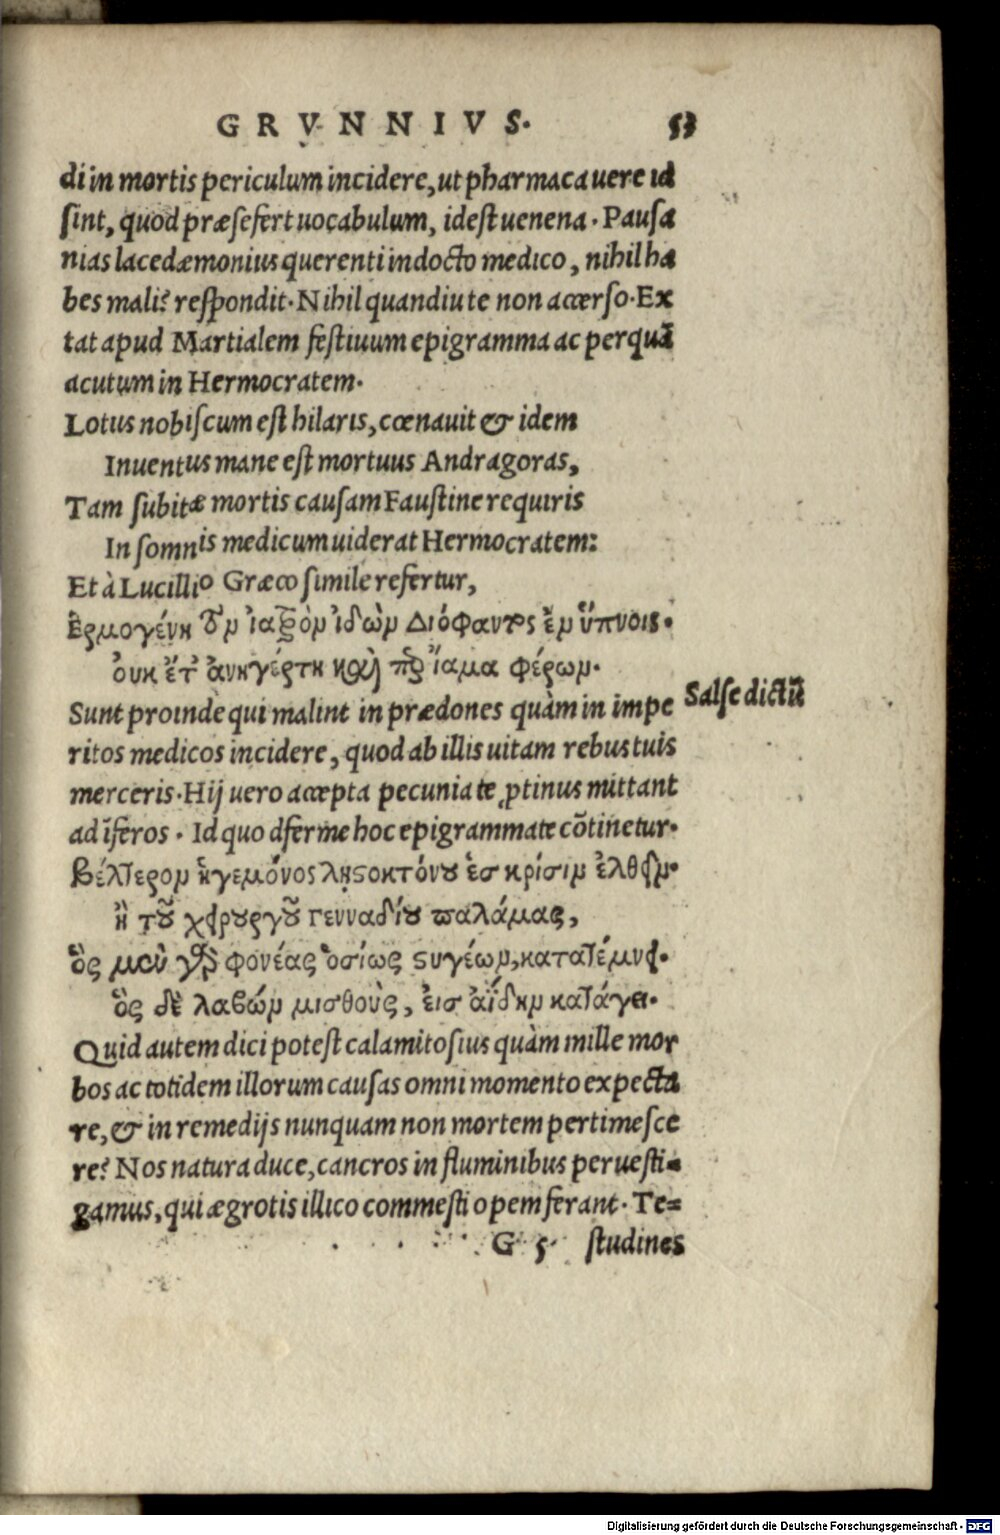 GRVNNIVS. 53
di in mortis periculum incidere, ut pharmaca uere id
sint, quod præsefert uocabulum, idest uenena. Pausa
nias lacedæmonius querenti indocto medico, nihil ha
bes mali? respondit. Nihil quandiu te non accerso. Ex
tat apud Martialem festiuum epigramma ac perquã
acutum in Hermocratem.
Lotus nobiscum est hilaris, cœnauit & idem
Inuentus mane est mortuus Andragoras,
Tam subitæ mortis causam Faustine requiris
In somnis medicum uiderat Hermocratem:
Et à Lucillio Græco simile refertur,
Ἑρμογένη τὸν ἰατρὸν ἰδὼν Διόφαντος ἐν ὕπνοις.
οὐκ ἔτ' ἀνηγέρτη καὶ περίαμα φέρων.
Sunt proinde qui malint in prædones quàm in impe
Salse dictũ
ritos medicos incidere, quod ab illis uitam rebus tuis
merceris. Hij uero accepta pecunia te ꝓtinus mittant
ad ĩferos. Id quod ferme hoc epigrammate cõtinetur.
Βέλτερον ἡγεμόνος ληστοκτόνου ἐσ κρίσιν ἐλθεῖν.
ἢ τοῦ χειρουργοῦ Γενναδίου παλάμας,
ὃς μὲν γὰρ φονέας ὁσίως στυγέων, κατατέμνει.
ὃς δὲ λαβὼν μισθοὺς, εἰσ ἀΐδην κατάγει.
Quid autem dici potest calamitosius quàm mille mor
bos ac totidem illorum causas omni momento expecta
re, & in remedijs nunquam non mortem pertimesce
re? Nos natura duce, cancros in fluminibus peruesti-
gamus, qui ægrotis illico commesti opem ferant. Te-
G 5 studines
Digitalisierung gefördert durch die Deutsche Forschungsgemeinschaft - DFG